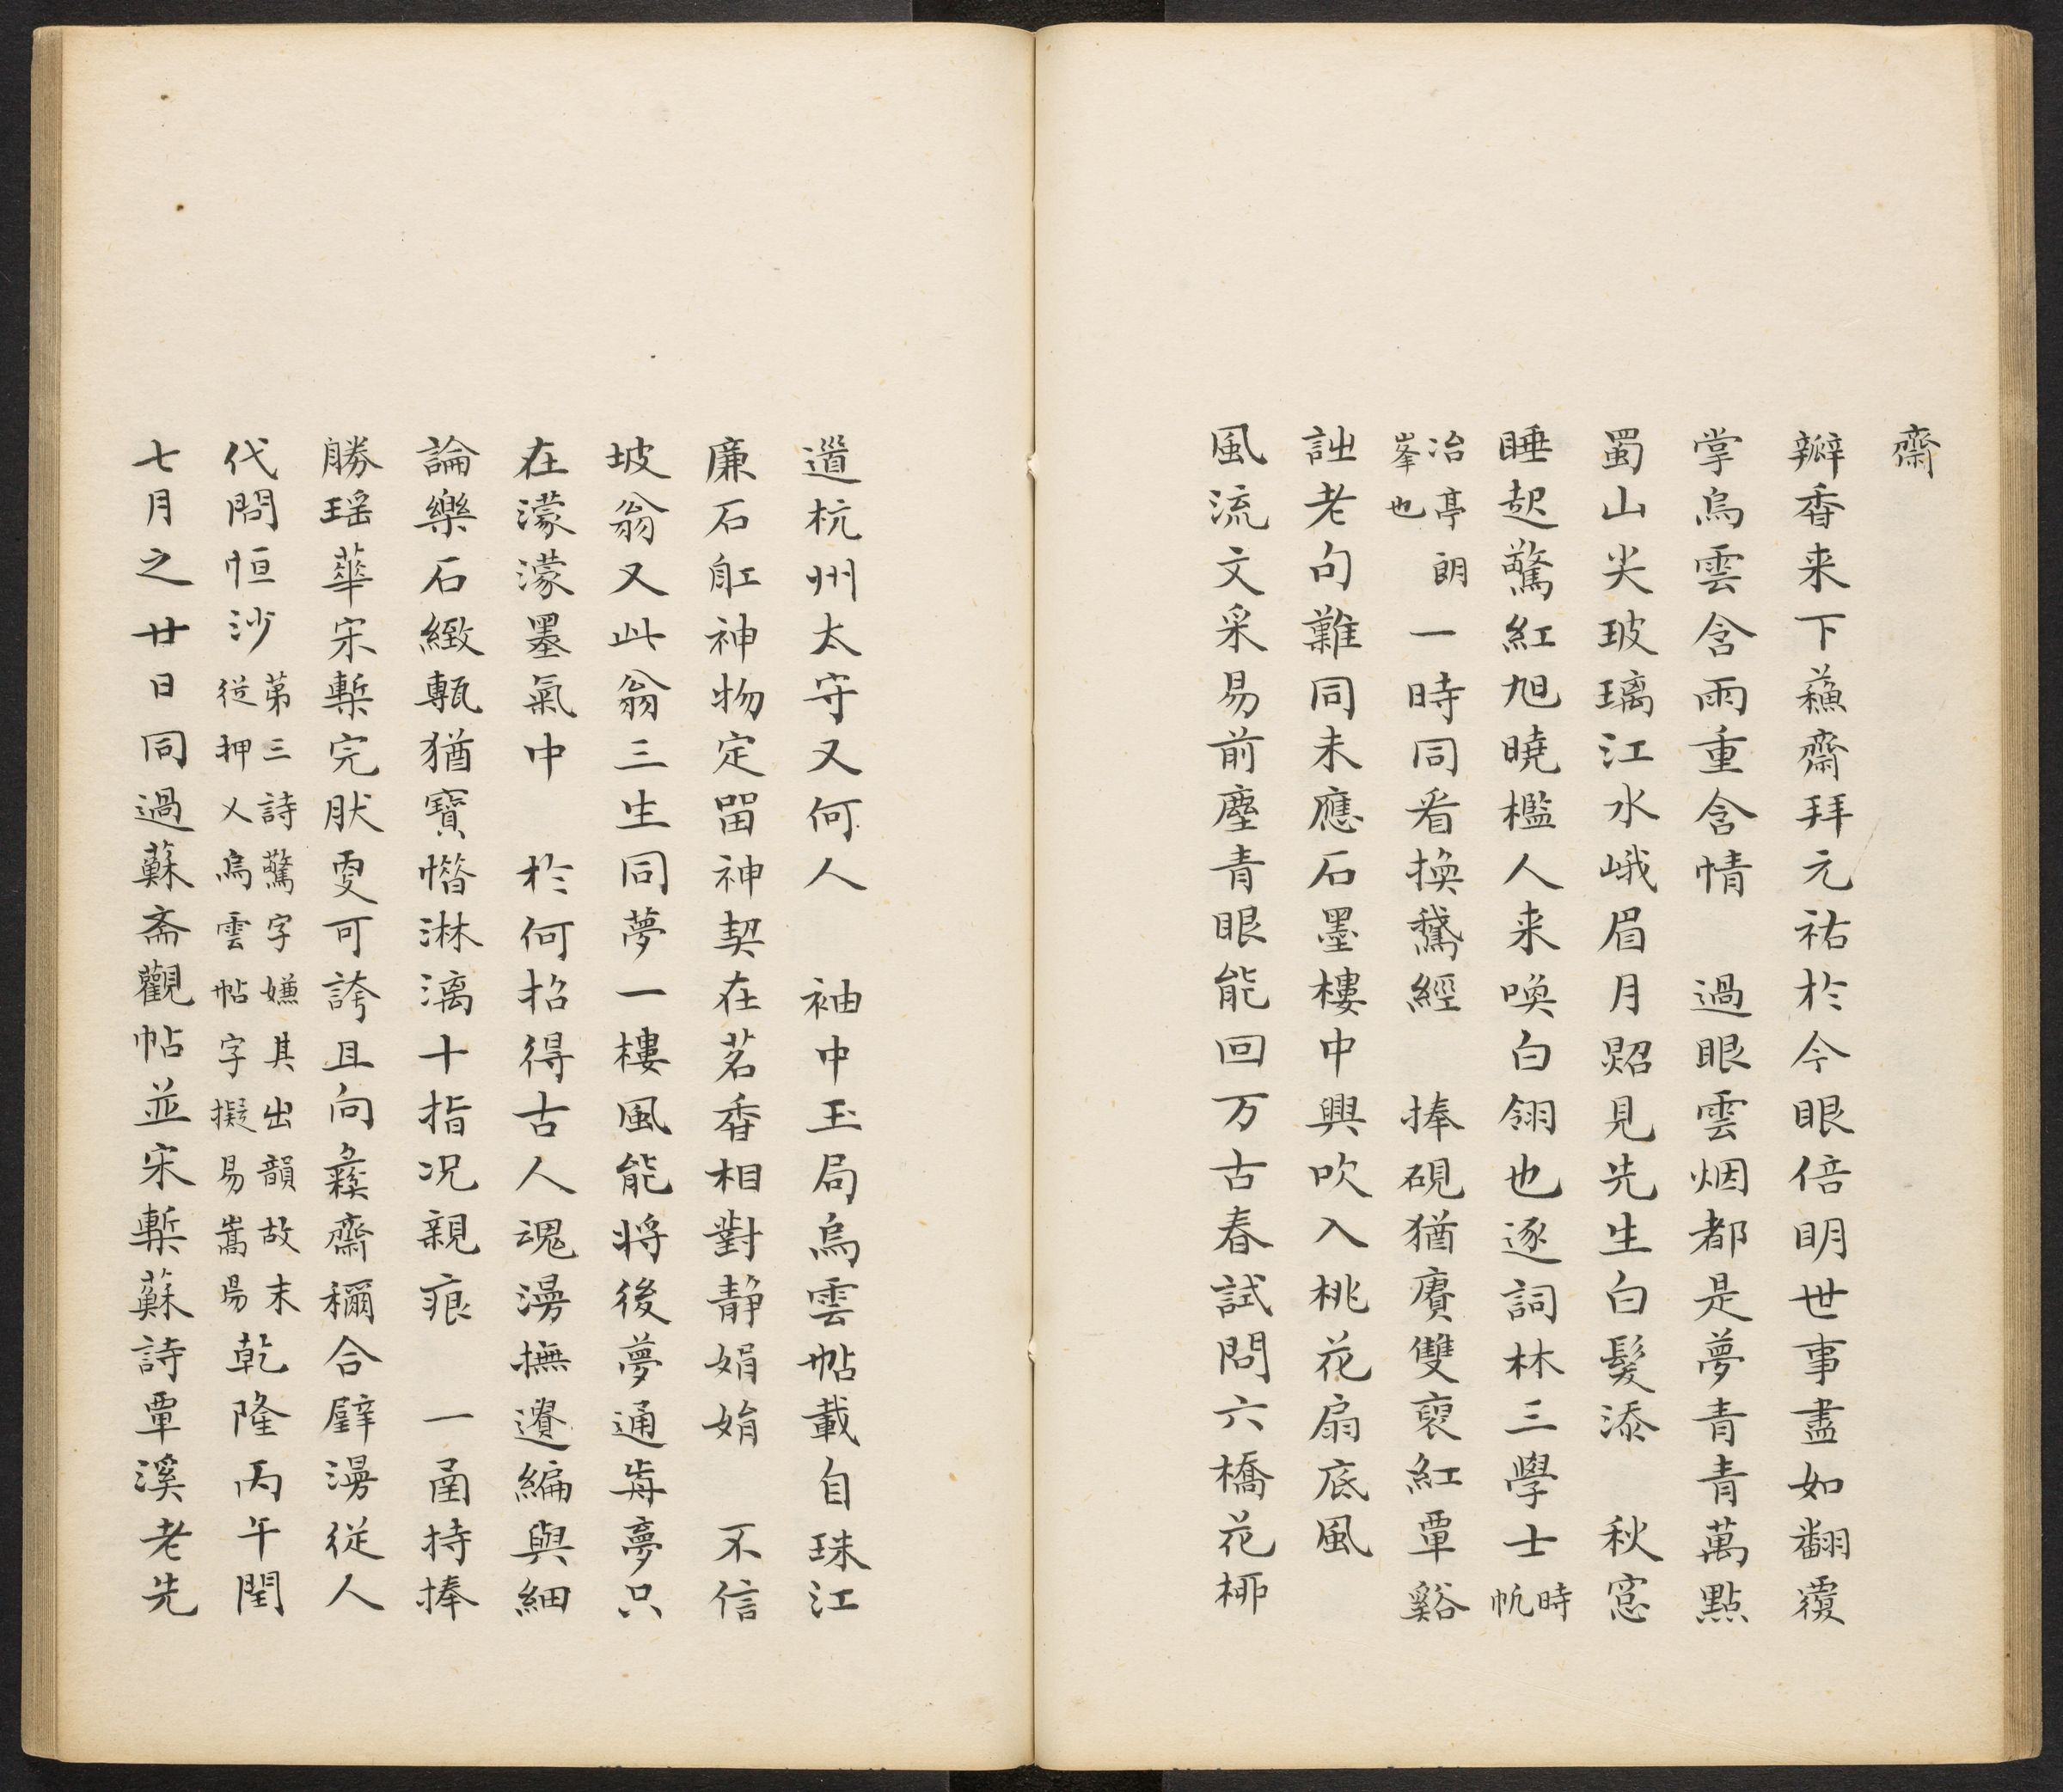 齋
瓣香来下蘓齋拜元祐於今眼倍明世事盡如翻覆
掌烏雲含雨重含情　過眼雲烟都是夢青青萬點
蜀山尖玻璃江水峨眉月照見先生白髮添　秋窓
睡起驚紅旭曉檻人来喚白翎也逐詞林三學士時
帆
冶亭朗
峯也
一時同看換鵞經　捧硯猶賡雙裒紅覃谿
詘老句難同未應石墨樓中興吹入桃花扇底風
風流文采易前塵青眼能回万古春試問六橋花柳
道杭州太守又何人　袖中玉局烏雲帖載自珠江
廉石舡神物定畱神契在茗香相對靜娟娟　不信
坡翁又此翁三生同夢一樓風能将後夢通歬夢只
在濛濛墨氣中　於何招得古人魂漫撫遺編與細
論樂石緻甎猶寶惜淋漓十指况親痕　一圅持捧
勝瑶華宋槧完肰更可誇且向彝齋稱合璧漫從人
代問恒沙
第三詩驚字嫌其出韻故末
從押人烏雲帖字擬易嵩陽
乾隆丙午閏
七月之廿日同過蘇斋觀帖並宋槧蘇詩覃溪老先